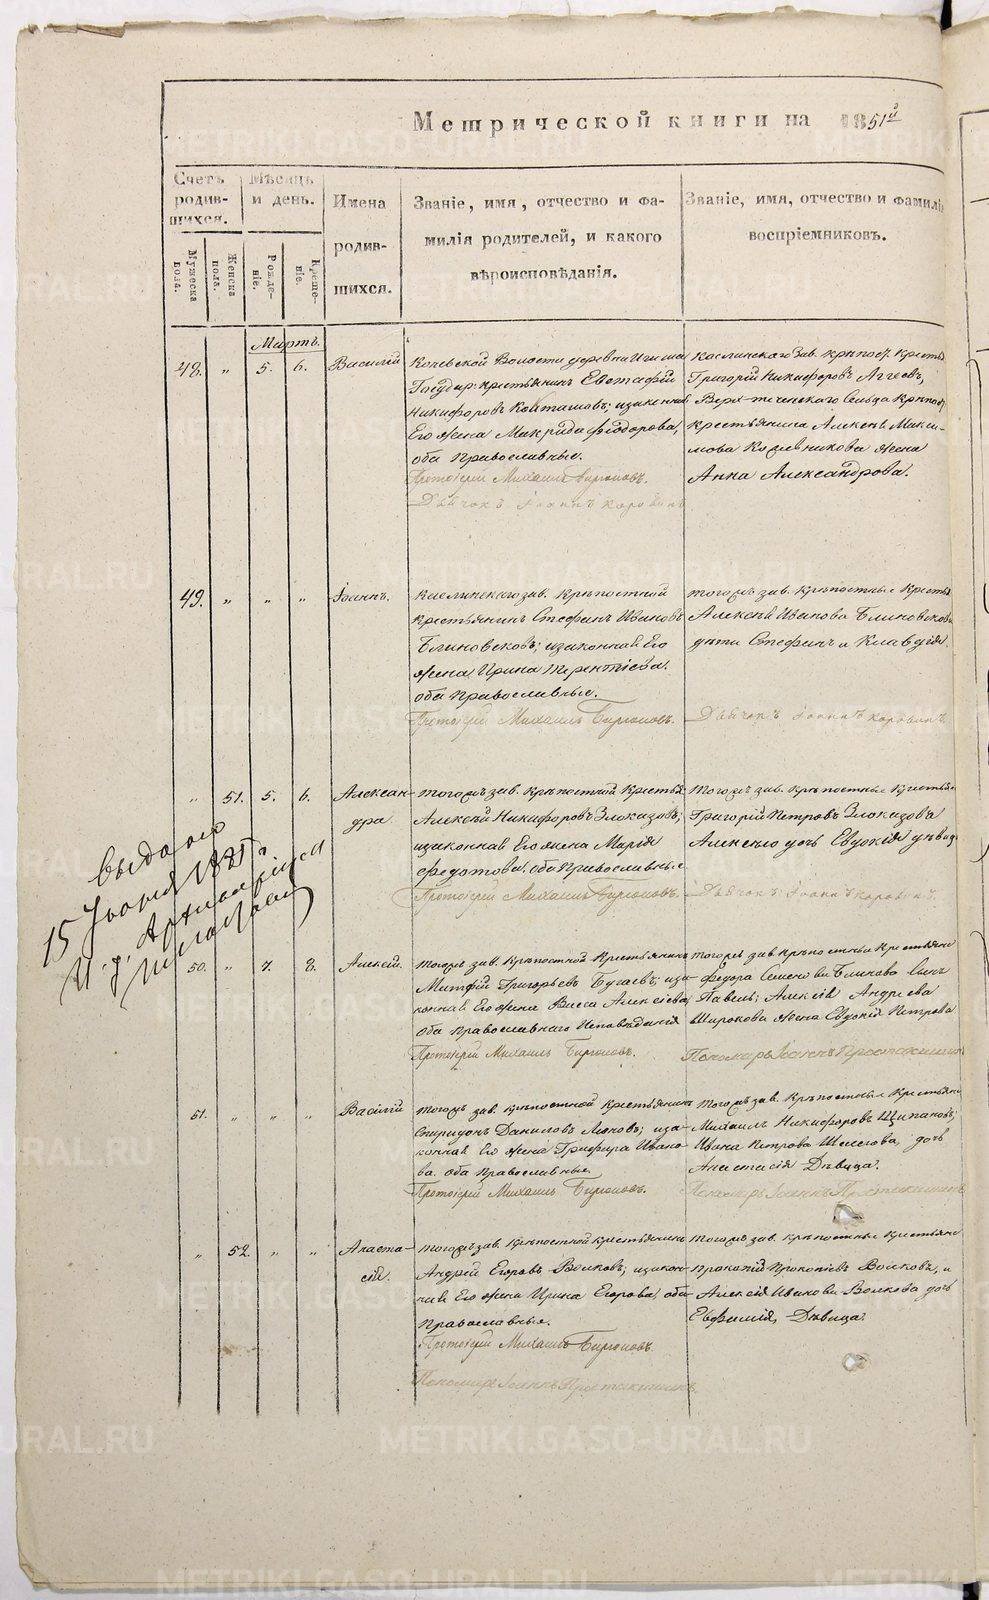 Метрической книги на 1851й
Счетъ родив-шихся.
Мѣсяцъ и день.
Имена родив-шихся.
Званіе, имя, отчество и фа-
милія родителей, и какого
вѣроисповѣданія.
Званіе, имя, отчество и фамилія
воспріемниковъ.
Мужеска пола.
Женска пола.
Рожде-ніе.
Креще-ніе.
Мартъ.
48. „ 5. 6. Василій
Кочевской Волости деревни
Государ: крестьянинъ Евстафій
Никифоровъ; изаконная
Его жена Макрида Феодорова,
оба Православные.
Протоіерей Михаилъ Бирюковъ.
Дьячокъ Іоаннъ Коровинъ
Каслинскаго зав. крѣпост. Кресть
Григорій Никифоровъ Аггеевъ,
Верх-теченскаго Сельца Крѣпос
крестьянина Алексея Макси-
мова Кожевникова жена
Анна Александрова.
49. „ „ „ Іоаннъ.
Каслинскаго зав. крѣпостной
крестьянинъ Стефанъ Ивановъ
Блиновсковъ; изаконная Его
жена Ирина Терентіева.
оба Православные.
Протоіерей Михаилъ Бирюковъ.
тогожъ зав. Крѣпостные Кресть
Алексѣя Иванова Блиновсков
дѣти Стефанъ и Клавдія.
Дьячокъ Іоаннъ Коровинъ.
„ 51. 5. 6. Алексан-
дра
тогожъ зав. крѣпостной Крестья
Алексѣй Никифоровъ Злоказовъ;
изаконная Его жена Марія
Федотова. оба Православные
Протоіерей Михаилъ Бирюковъ.
Тогожъ зав. Крѣпостные Крестья
Григорій Петровъ Злоказова
Алексѣю дочь Евдокія дѣвица
Дьячокъ Іоаннъ Коровинъ.
Выдано
15 Іюня
И. д.
50. „ 7. 8. Алексій.
тогожъ зав. Крѣпостной Крестьянинъ
Матфій Григорьевъ Бугаевъ; иза-
конная Его жена Васса Алексіева
Оба Православнаго Исповѣданія
Протоіерей Михаилъ Бирюковъ.
тогожъ зав Крѣпостные Крестьяне
Федора Семенова Блинова Сынъ
Павелъ; Алексія Андреева
Широкова жена Евдокія Петрова
Пономарь Іоаннъ Простокишинъ
51. „ „ „ Василій
тогожъ зав. крѣпостной Крестьянинъ
Спиридонъ Даниловъ; иза-
конная Его жена Ивано-
ва. оба Православные.
Протоіерей Михаилъ Бирюковъ.
Тогожъ зав. Крѣпостные Крестьяне
Михаилъ Никифоровъ Щипановъ;
Ивана Петрова Шелегова, дочь
Анастасія Дѣвица.
Пономарь Іоаннъ Простокишинъ
„ 52. „ „ Анаста-
сія.
тогожъ зав. Крѣпостной крестьянинъ
Андрей Егоровъ Волковъ; изакон-
ная Его жена Ирина Егорова, оба
Православные.
Протоіерей Михаилъ Бирюковъ.
Пономарь Іоаннъ Простокишинъ.
Тогожъ зав. крѣпостные крестьяне
Прокопій Прокопіевъ Волковъ, и
Алексія Иванова Волкова дочь
Евфимія, Дѣвица.
METRIKI.GASO-URAL.RU